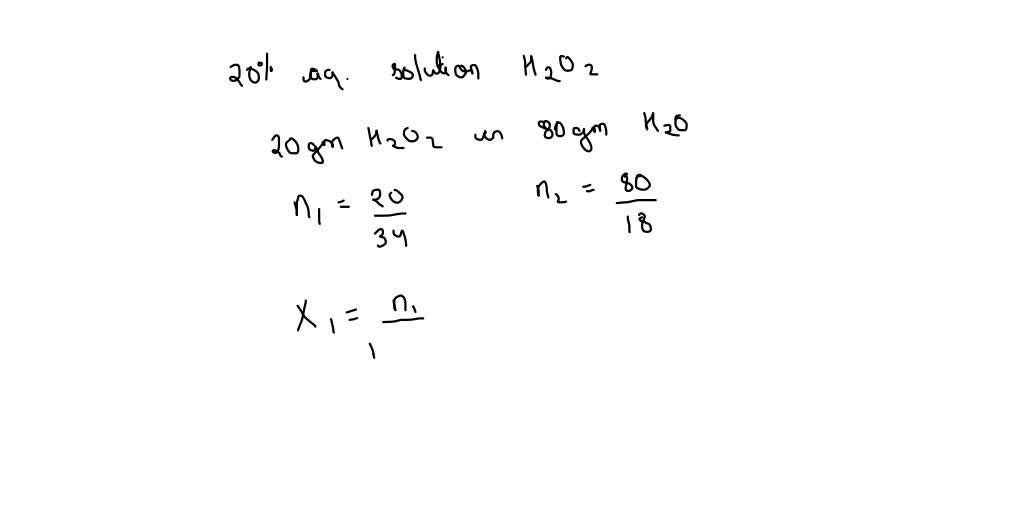 20% aq. solution H₂O₂
20 gm H₂O₂ in 80 gm H₂O
n₁ = 20/34 n₂ = 80/18
X₁ = n₁/1